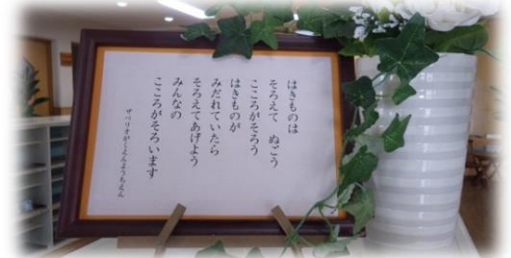 はきものは
そろえて　ぬごう
こころがそろう
はきものが
みだれていたら
そろえてあげよう
みんなの
こころがそろいます
ザベリオがくえんようちえん